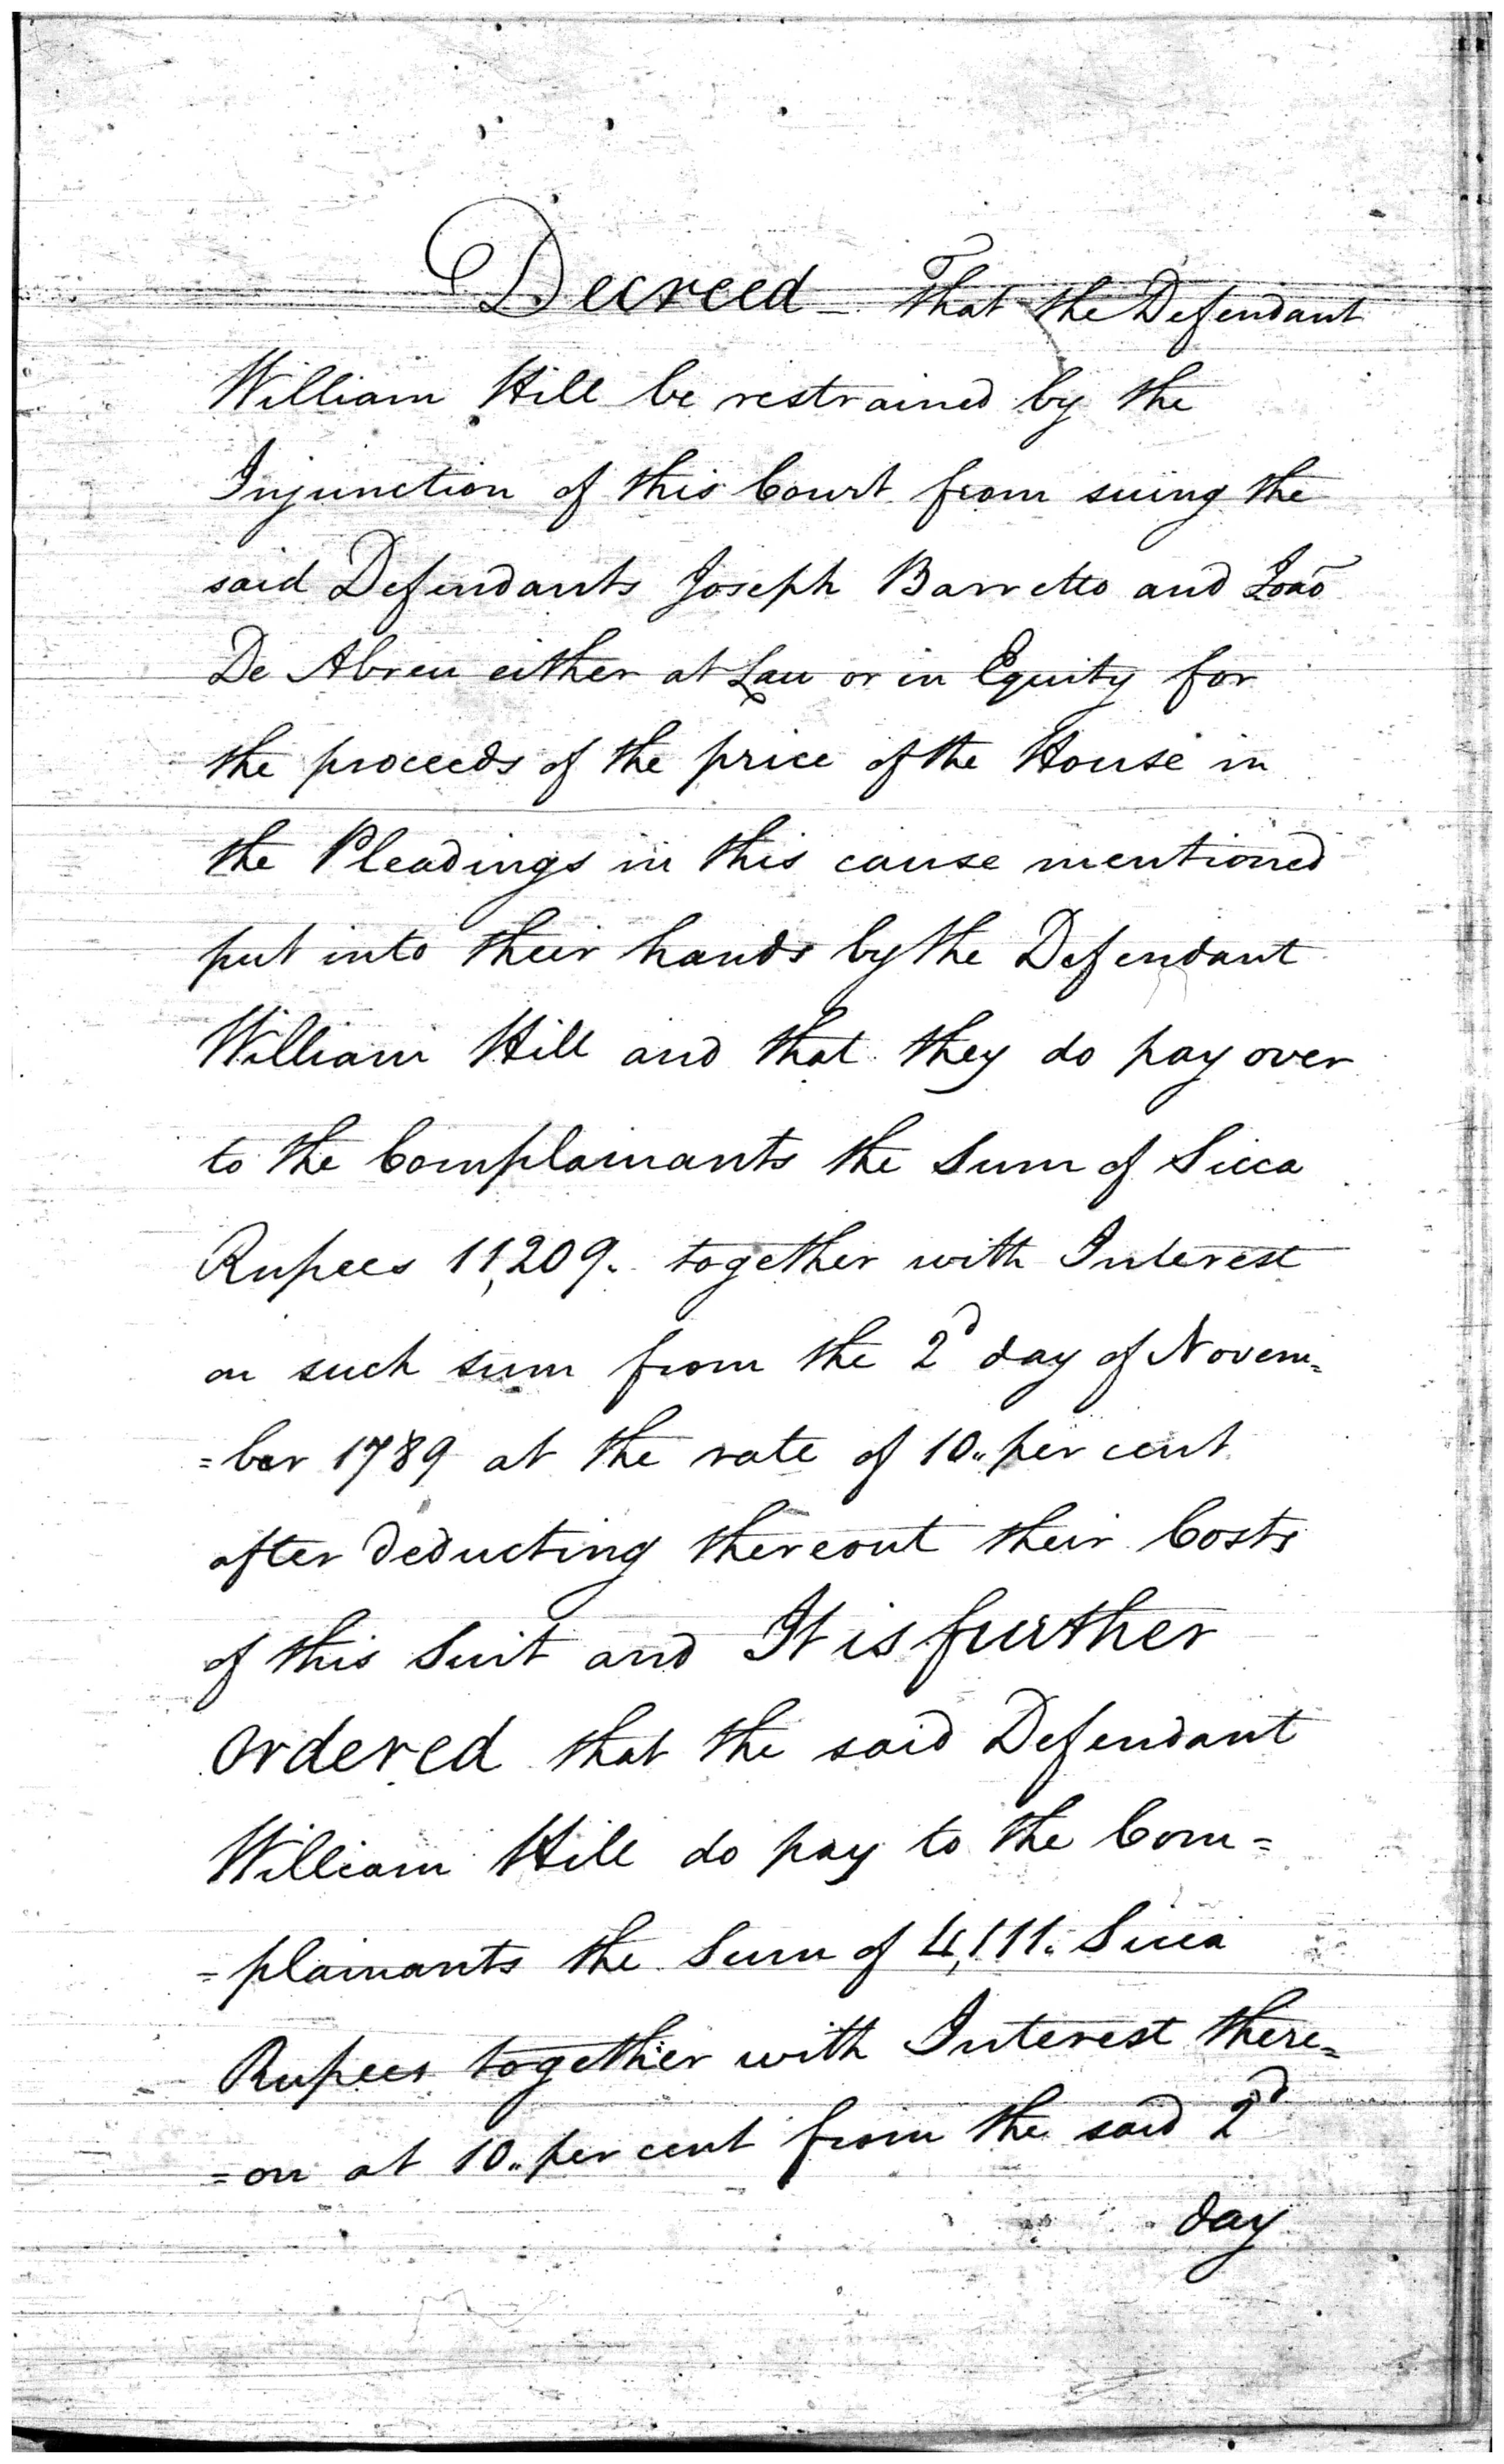 Decreed – That the Defendant
William Hill be restrained by the
Injunction of this Court from suing the
said Defendants Joseph Barretto and Joaõ
De Abreu either at Law or in Equity for
the proceeds of the price of the House in
the Pleadings in this cause mentioned
put into their hands by the Defendant
William Hill and that they do pay over
to the Complainants the Sum of Sicca
Rupees 11,209.. together with Interest
on such sum from the 2d day of Novem=
=ber 1789 at the rate of 10.. per cent
after deducting thereout their Costs
of this Suit and It is further
ordered that the said Defendant
William Hill do pay to the Com=
=plainants the Sum of 4,111.. Sicca
Rupees together with Interest there=
=on at 10.. per cent from the said 2d
day